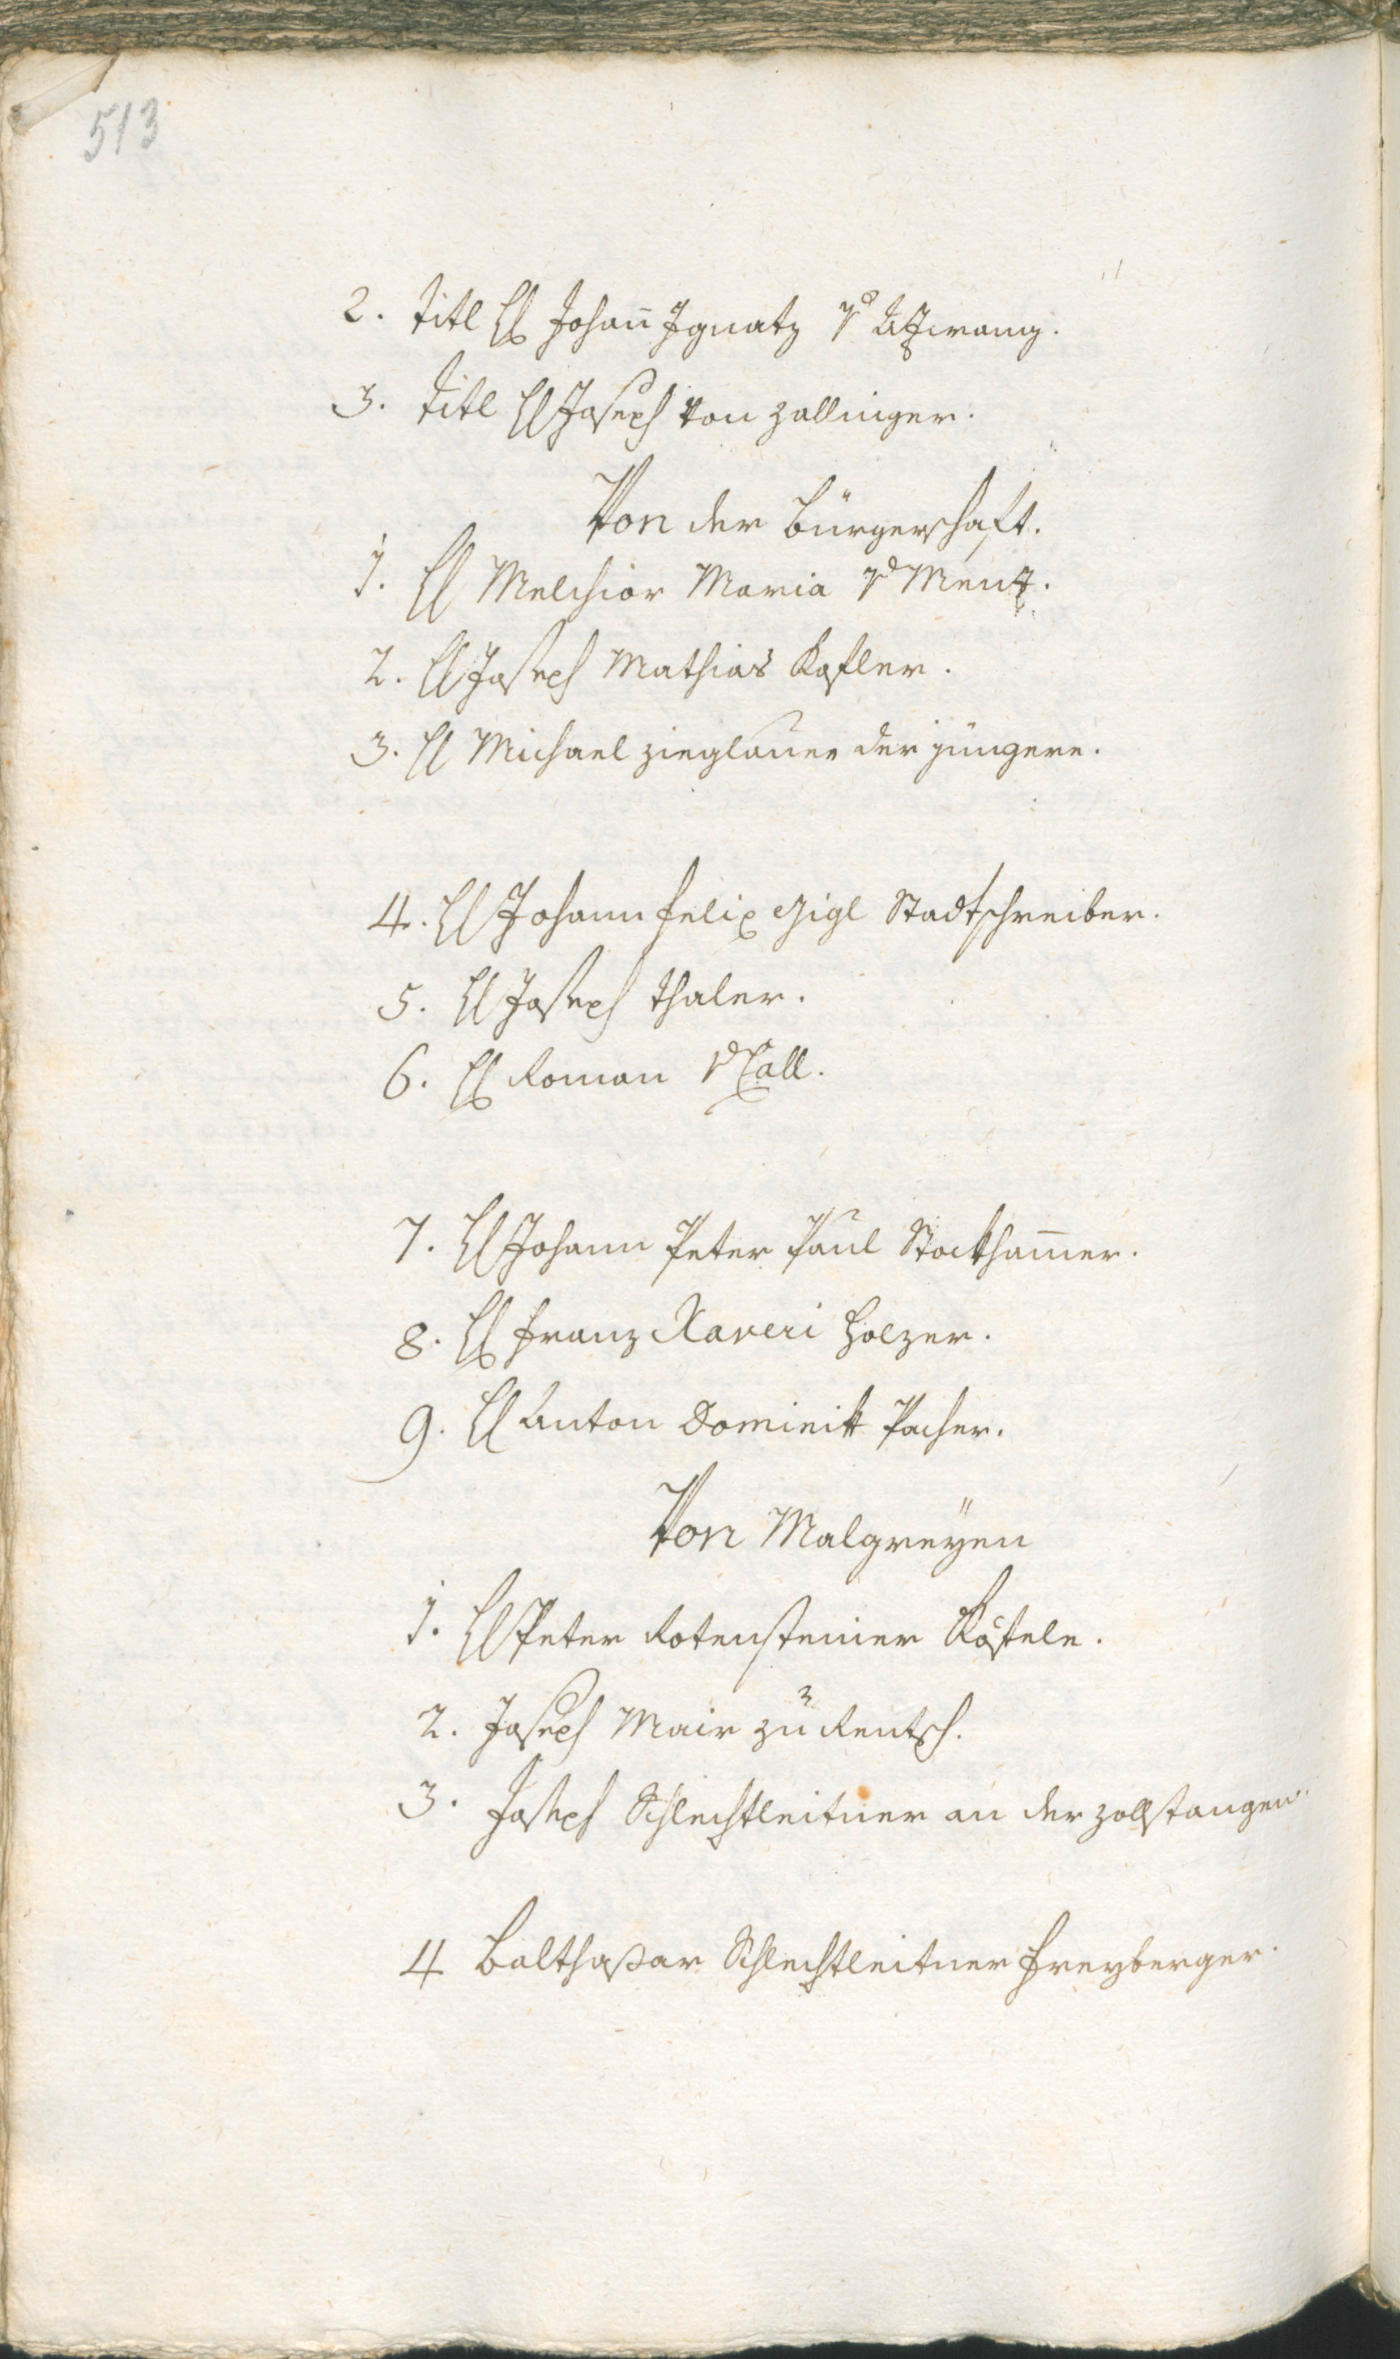 513
2. Titl H Johan̄ Ignatz v Atzwang.
3. Titl H Joseph von Zallinger.
Von der Bürgerschaft.
1. H Melchior Maria v Menz.
2. H Joseph Mathias Kofler.
3. H Michael Zieglauer der jüngere.
4. H Johann Felix Gigl Stadtschreiber.
5. H Joseph Thaler.
6. H Roman v Call.
7. H Johann Peter Paul Stockham̄er.
8. H Franz Xaveri Holzer.
9. H Anton Dominikk Pacher.
Von Malgreÿen
1. H Peter Rotensteiner Köstele.
2. Joseph Mair zu Rentsch.
3. Joseph Schlechtleitner an der Zollstangen.
4 Balthaßar Schlechtleitner Freyberger.